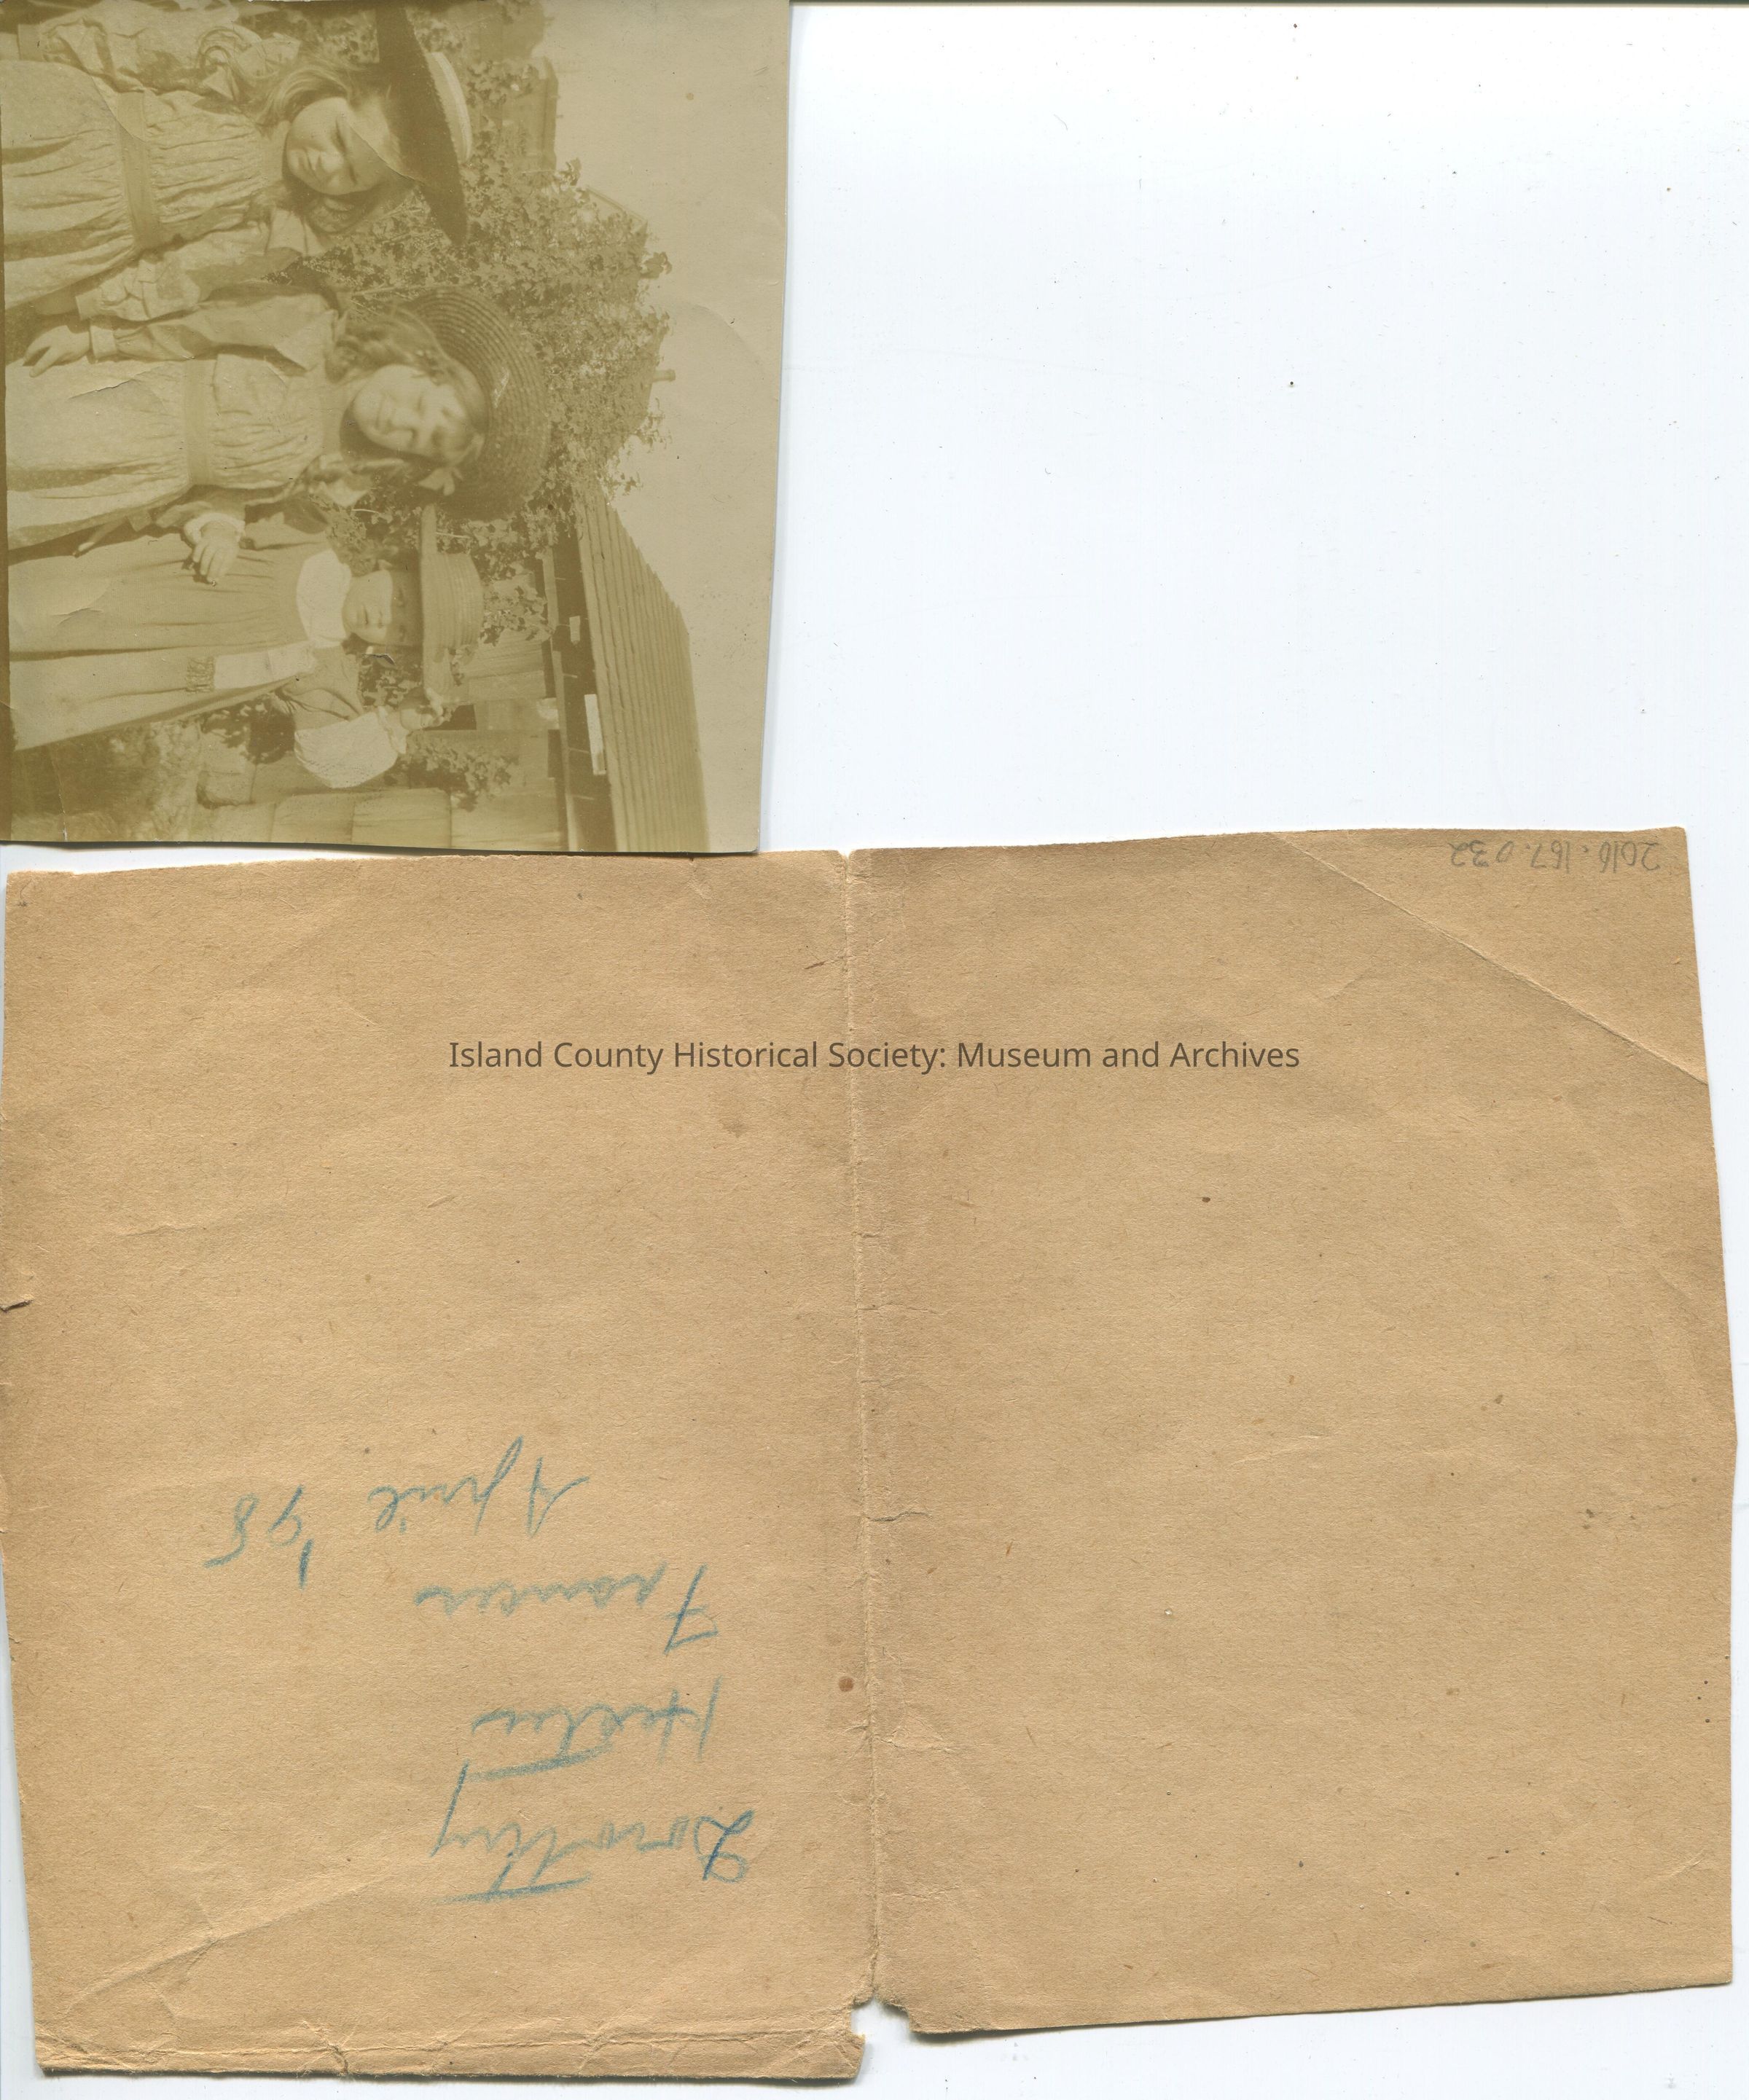 2016.167.032
Island County Historical Society: Museum and Archives
Dorothy
Hester
Frances
April '98